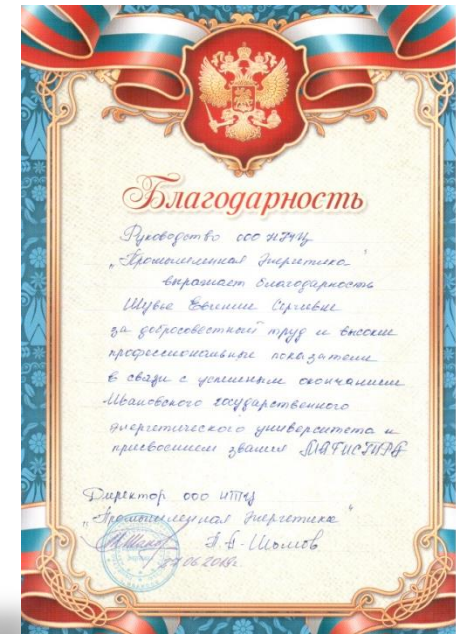 Благодарность
Руководство ООО ИТЧЦ
„Промышленная Энергетика"
выражает благодарность
Шубье Евгении Сергеевне
за добросовестный труд и высокие
профессиональные показатели
в связи с успешным окончанием
Ивановского государственного
энергетического университета и
присвоением звания МАГИСТРА
Директор ООО
„Промышленная Энергетика"